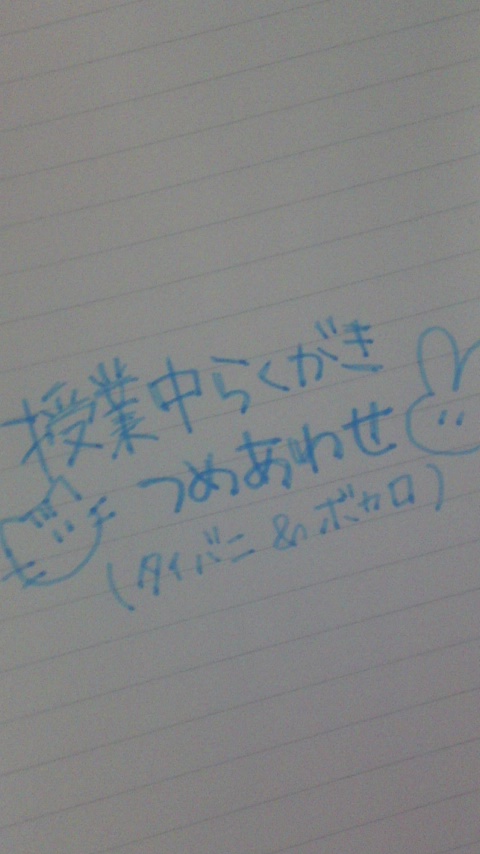 授業中らくがき
つめあわせ
(タイバニ&ボカロ)